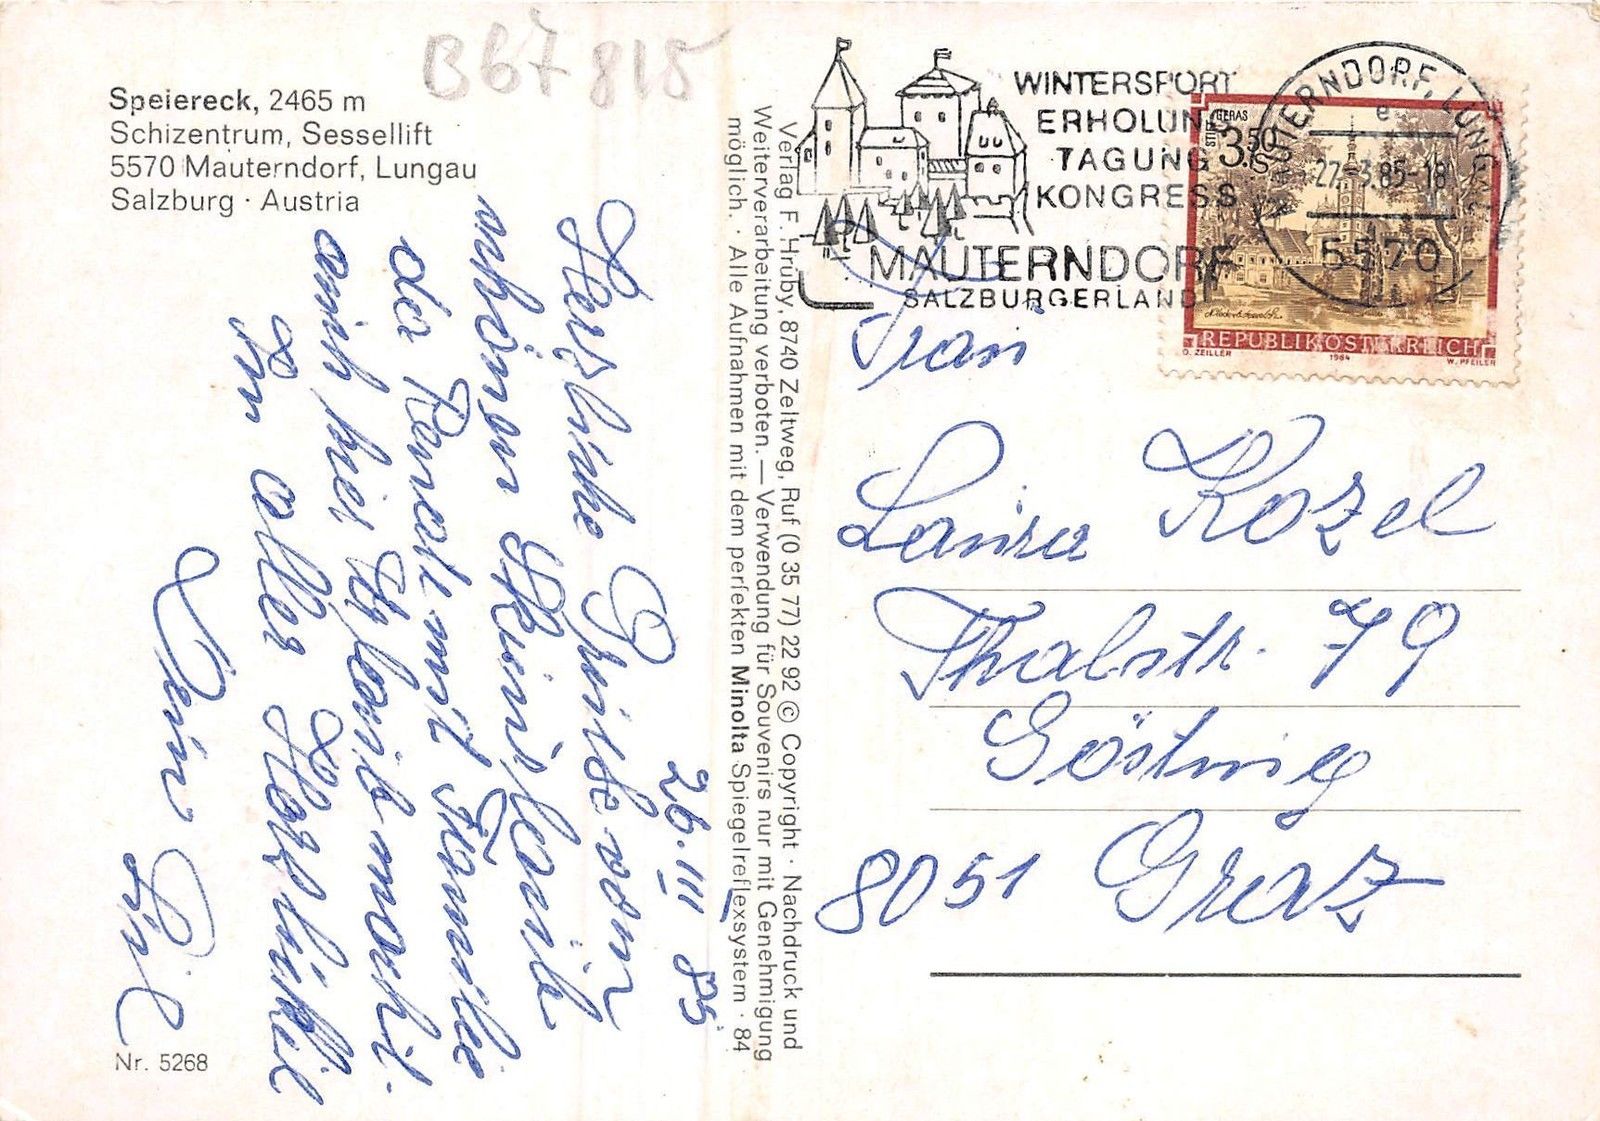 B67815
Speiereck, 2465 m
Schizentrum, Sessellift
5570 Mauterndorf, Lungau
Salzburg · Austria
26. III 85
Herzliche Grüße vom
schönen
der Renate mit Familie
auch hier Urlaub macht.
In aller Herzlichkeit
Dein
Nr. 5268
Verlag F. Hruby, 8740 Zeltweg, Ruf (0 35 77) 22 92 © Copyright · Nachdruck und
Weiterverarbeitung verboten. — Verwendung für Souvenirs nur mit Genehmigung
möglich. · Alle Aufnahmen mit dem perfekten Minolta-Spiegelreflexsystem · 84
WINTERSPORT
ERHOLUNG
TAGUNG
KONGRESS
MAUTERNDORF
SALZBURGERLAND
MAUTERNDORF, LUNGAU
e
27.-3.85-18
5570
STIFT GERAS
3.50
REPUBLIK ÖSTERREICH
O. ZEILLER 1984 W. PFEILER
Frau
Louise Kozel
Thalstr. 79
Gösting
8051 Graz